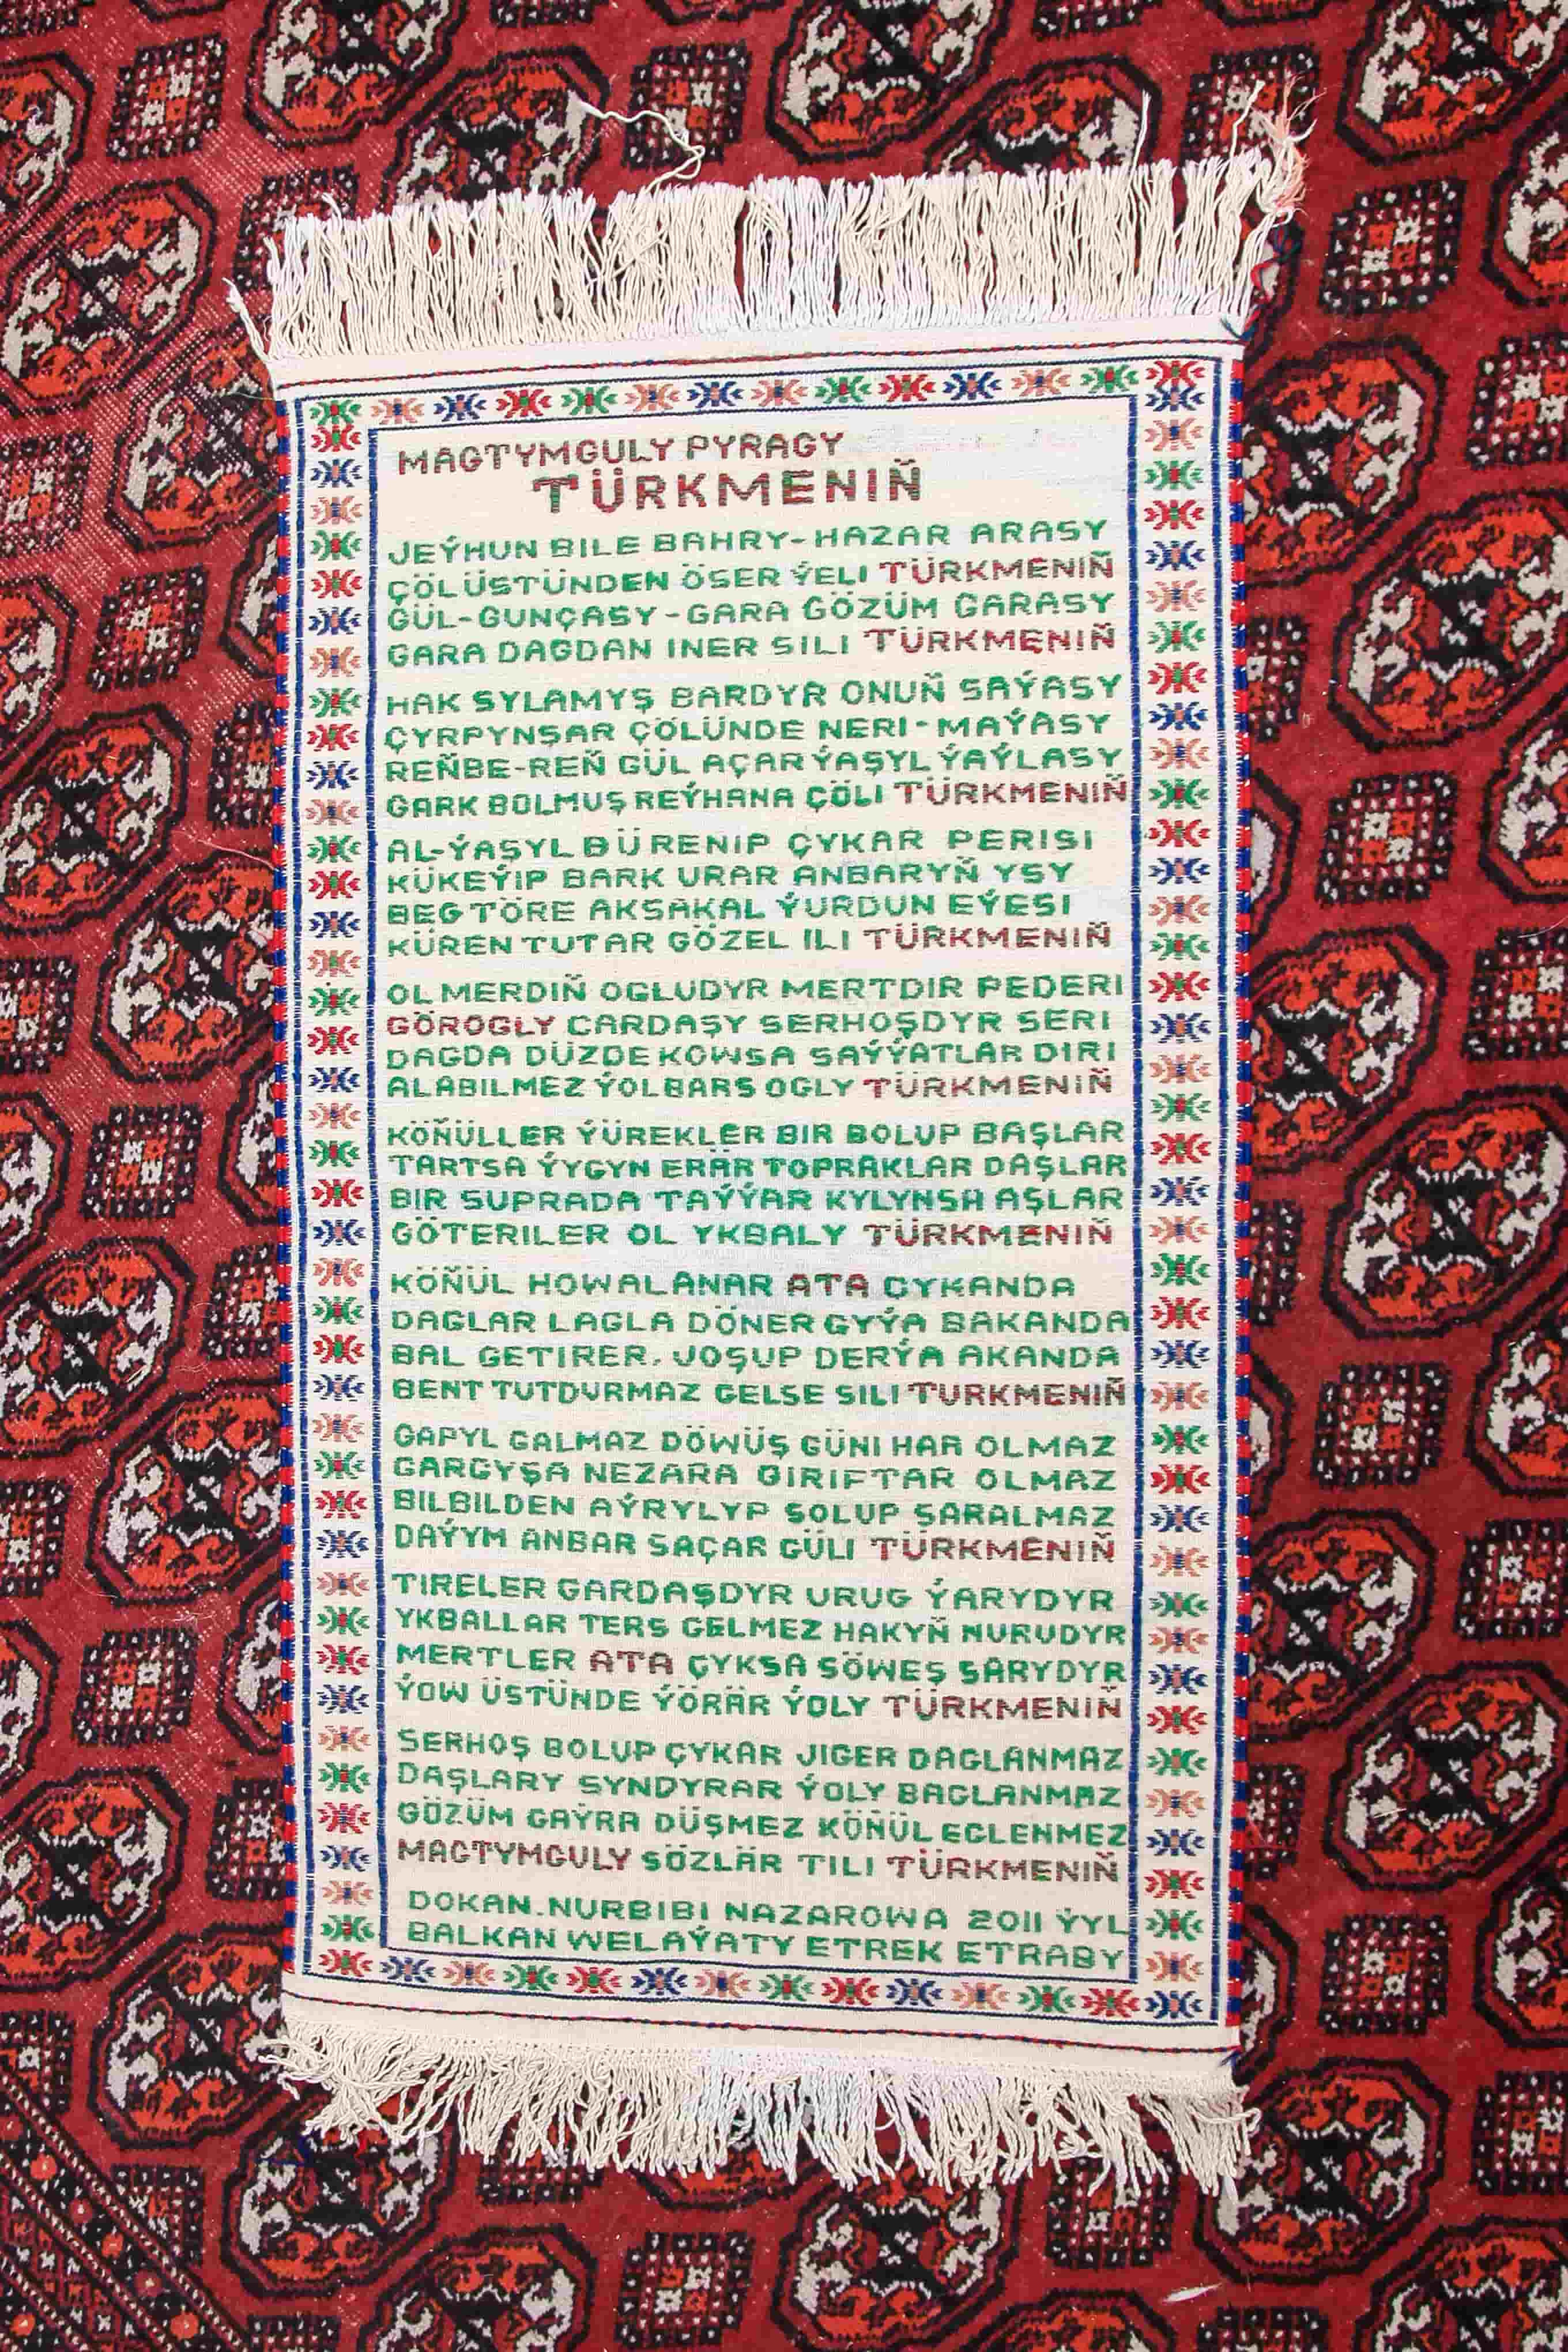 MAGTYMGULY PYRAGY
TÜRKMENIŇ
JEÝHUN BILE BAHRY-HAZAR ARASY
ÇÖLÜSTÜNDEN ÖSER ÝELI TÜRKMENIŇ
GÜL-GUNÇASY-GARA GÖZÜM GARASY
GARA DAGDAN INER SILI TÜRKMENIŇ
HAK SYLAMYŞ BARDYR ONUŇ SAÝASY
ÇYRPYNŞAR ÇÖLÜNDE NERI-MAÝASY
REŇBE-REŇ GÜL AÇAR ÝAŞYL ÝAÝLASY
GARK BOLMUŞ REÝHANA ÇÖLI TÜRKMENIŇ
AL-ÝAŞYL BÜRENIP ÇYKAR PERISI
KÜKEÝIP BARK URAR ANBARYŇ YSY
BEG TÖRE AKSAKAL ÝURDUN EÝESI
KÜREN TUTAR GÖZEL ILI TÜRKMENIŇ
OL MERDIŇ OGLUDYR MERTDIR PEDERI
GÖROGLY GARDAŞY SERHOŞDYR SERI
DAGDA DÜZDE KOWSA SAÝÝATLAR DIRI
ALABILMEZ ÝOLBARS OGLY TÜRKMENIŇ
KÖŇÜLLER ÝÜREKLER BIR BOLUP BAŞLAR
TARTSA ÝYGYN ERÄR TOPRAKLAR DAŞLAR
BIR SUPRADA TAÝÝAR KYLYNSA AŞLAR
GÖTERILER OL YKBALY TÜRKMENIŇ
KÖŇÜL HOWALANAR ATA ÇYKANDA
DAGLAR LAGLA DÖNER GYÝA BAKANDA
BAL GETIRER. JOŞUP DERÝA AKANDA
BENT TUTDURMAZ GELSE SILI TURKMENIŇ
GAPYL GALMAZ DÖWÜŞ GÜNI HAR OLMAZ
GARGYŞA NEZARA GIRIFTAR OLMAZ
BILBILDEN AÝRYLYP SOLUP SARALMAZ
DAÝYM ANBAR SAÇAR GÜLI TÜRKMENIŇ
TIRELER GARDAŞDYR URUG ÝARYDYR
YKBALLAR TERS GELMEZ HAKYŇ NURUDYR
MERTLER ATA ÇYKSA SÖWEŞ SARYDYR
ÝOW ÜSTÜNDE ÝÖRÄR ÝOLY TÜRKMENIŇ
SERHOŞ BOLUP ÇYKAR JIGER DAGLANMAZ
DAŞLARY SYNDYRAR ÝOLY BAGLANMAZ
GÖZÜM GAÝRA DÜŞMEZ KÖŇÜL EGLENMEZ
MAGTYMGULY SÖZLÄR TILI TÜRKMENIŇ
DOKAN.NURBIBI NAZAROWA 2011 ÝYL
BALKAN WELAÝATY ETREK ETRABY